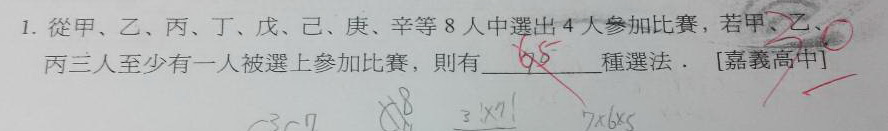 1. 從甲、乙、丙、丁、戊、己、庚、辛等 8 人中選出 4 人參加比賽，若甲、乙、
丙三人至少有一人被選上參加比賽，則有 65 種選法．[嘉義高中]
3!×7! 7×6×5